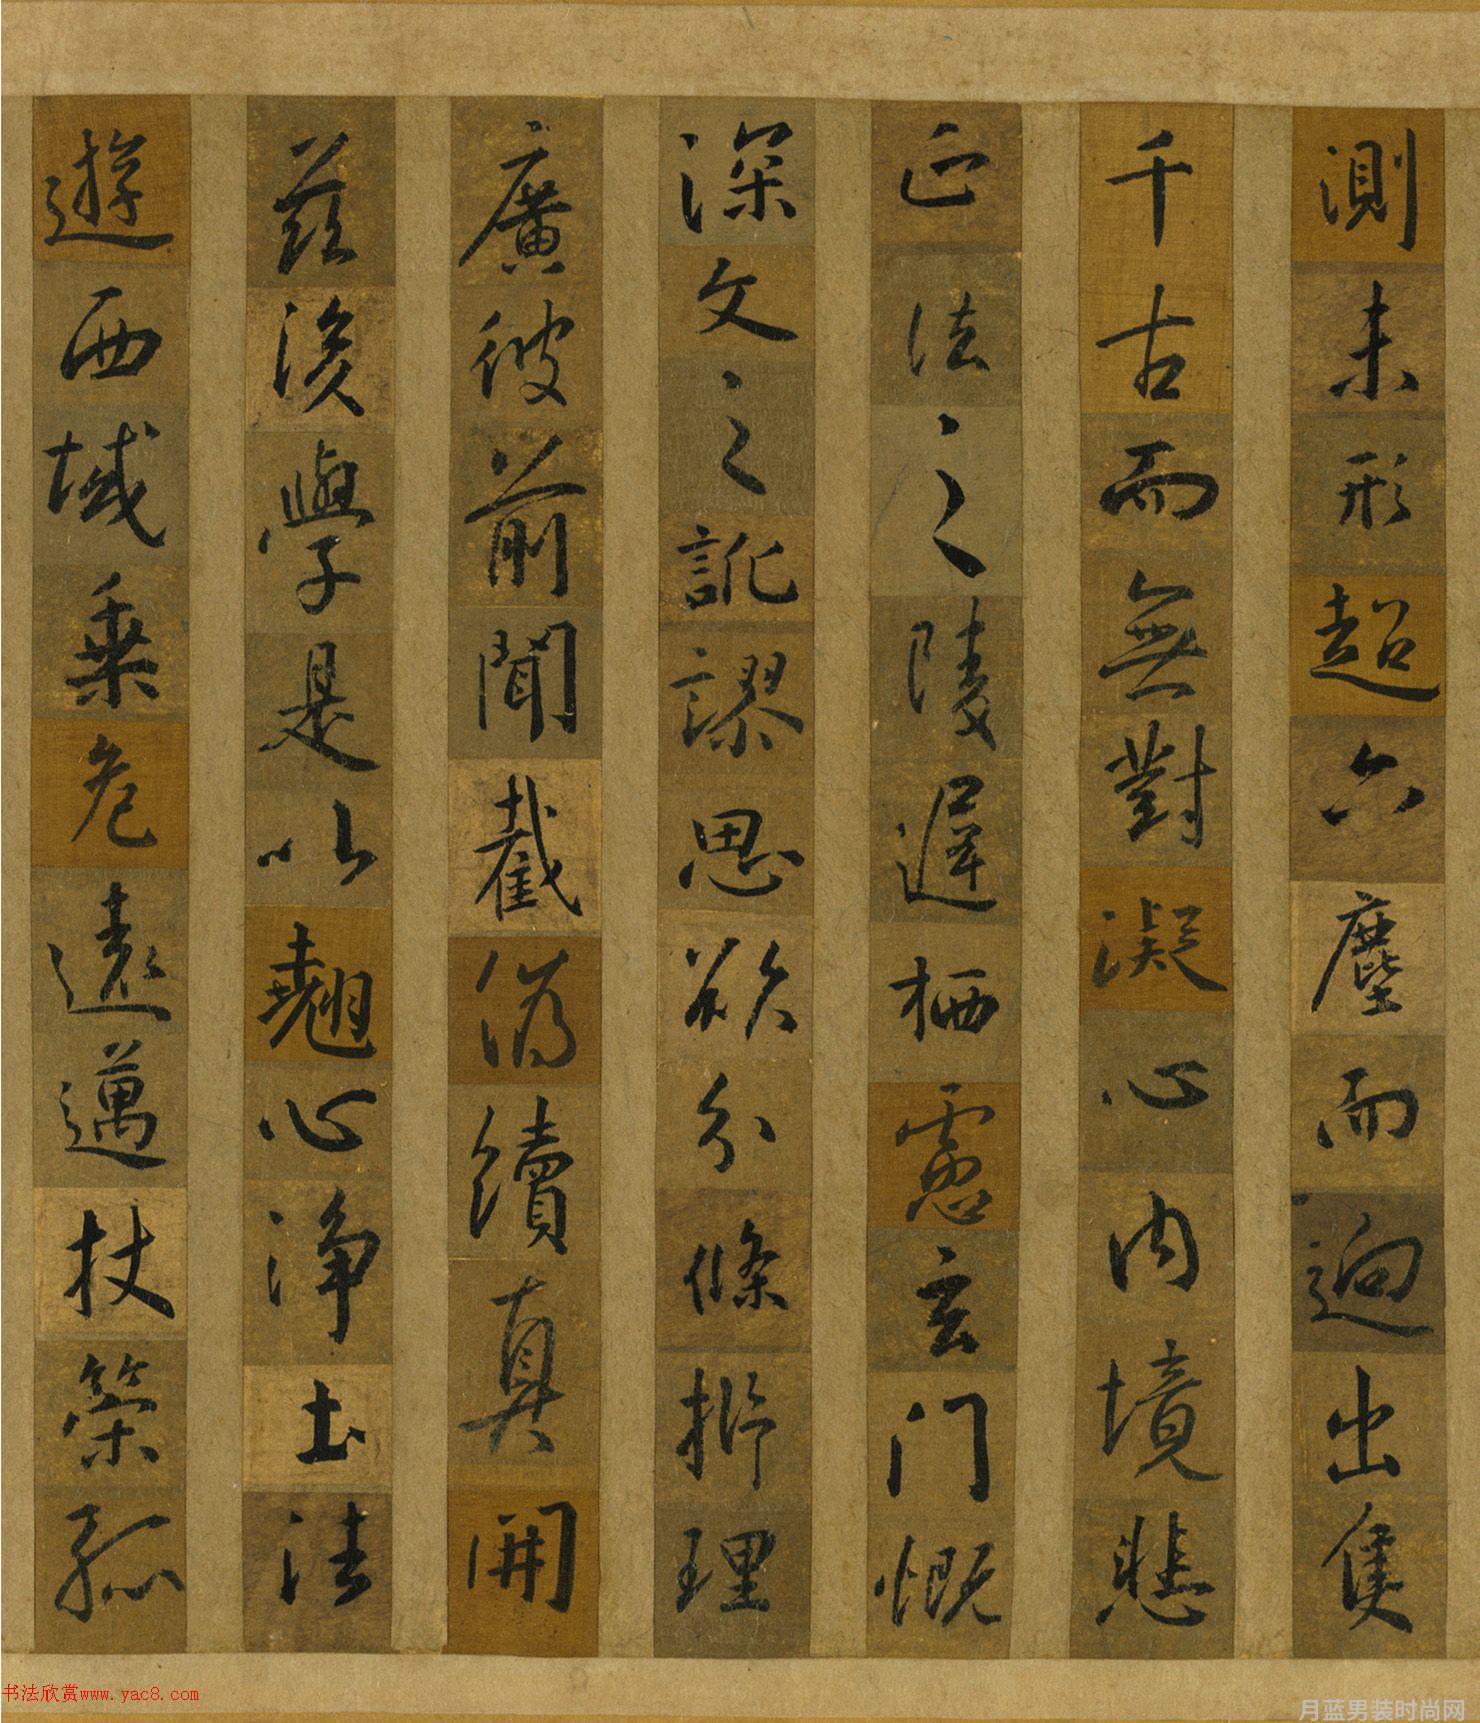 測未形超六塵而迥出隻
千古而無對凝心內境悲
正法之陵遲栖慮玄門慨
深文之訛謬思欲分條㭊理
廣彼前聞截偽續真開
茲後學是以翹心淨土法
遊西域乗危遠邁杖策孤
书法欣赏www.yac8.com
月蓝男装时尚网